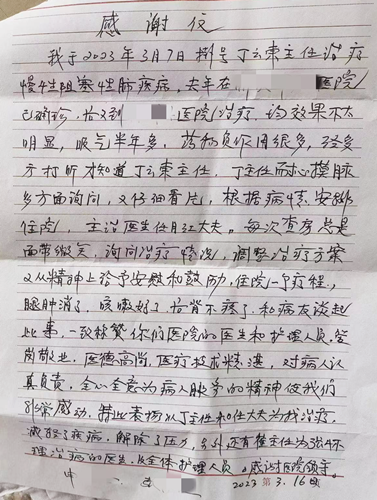 感谢仪
我于2023年3月7日掛号丁云東主任治疗
慢性阻塞性肺疾病，去年在 医院
已确诊，后又到 医院治疗，说效果不大
明显，吸气半年多，药物负作用很多，经多
方打听才知道丁云東主任，丁主任耐心摸脉
多方面询问，又仔细看片，根据病情安排
住院，主治医生任月红大夫。每次查房总是
面带微笑，询问治疗情况，调整治疗方案
又从精神上给予安慰和鼓励，住院一个疗程，
腿肿消了，咳嗽好了，后背不疼了，和病友谈起
此事，一致称赞你们医院的医生和护理人员，
敬业，医德高尚，医疗技术精湛，对病人认
真负责，全心全意为病人服务的精神使我们
非常感动，特此表扬丁主任和任大夫为我治疗，
减轻了疾病，解除了压力，另外还有崔主任为
理治病的医生，及全体护理人员。感谢医院领导。
2023.3.16